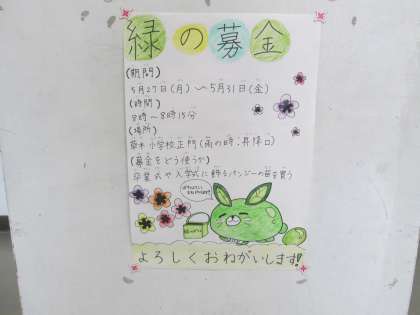 緑の募金
(期間)
5月27日(月)～5月31日(金)
(時間)
8時～8時15分
(場所)
小学校正門(雨の時、昇降口)
(募金をどう使うか)
卒業式や入学式に飾るパンジーの苗を買う
よろしくおねがいします!!